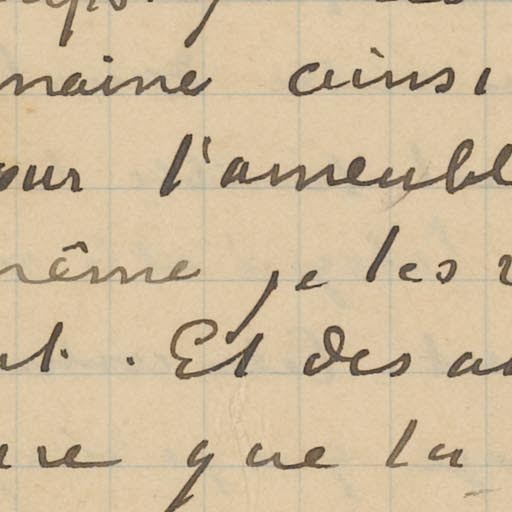 maine ainsi
our l'ameubl
même je les
nt. Et des au
ure que la